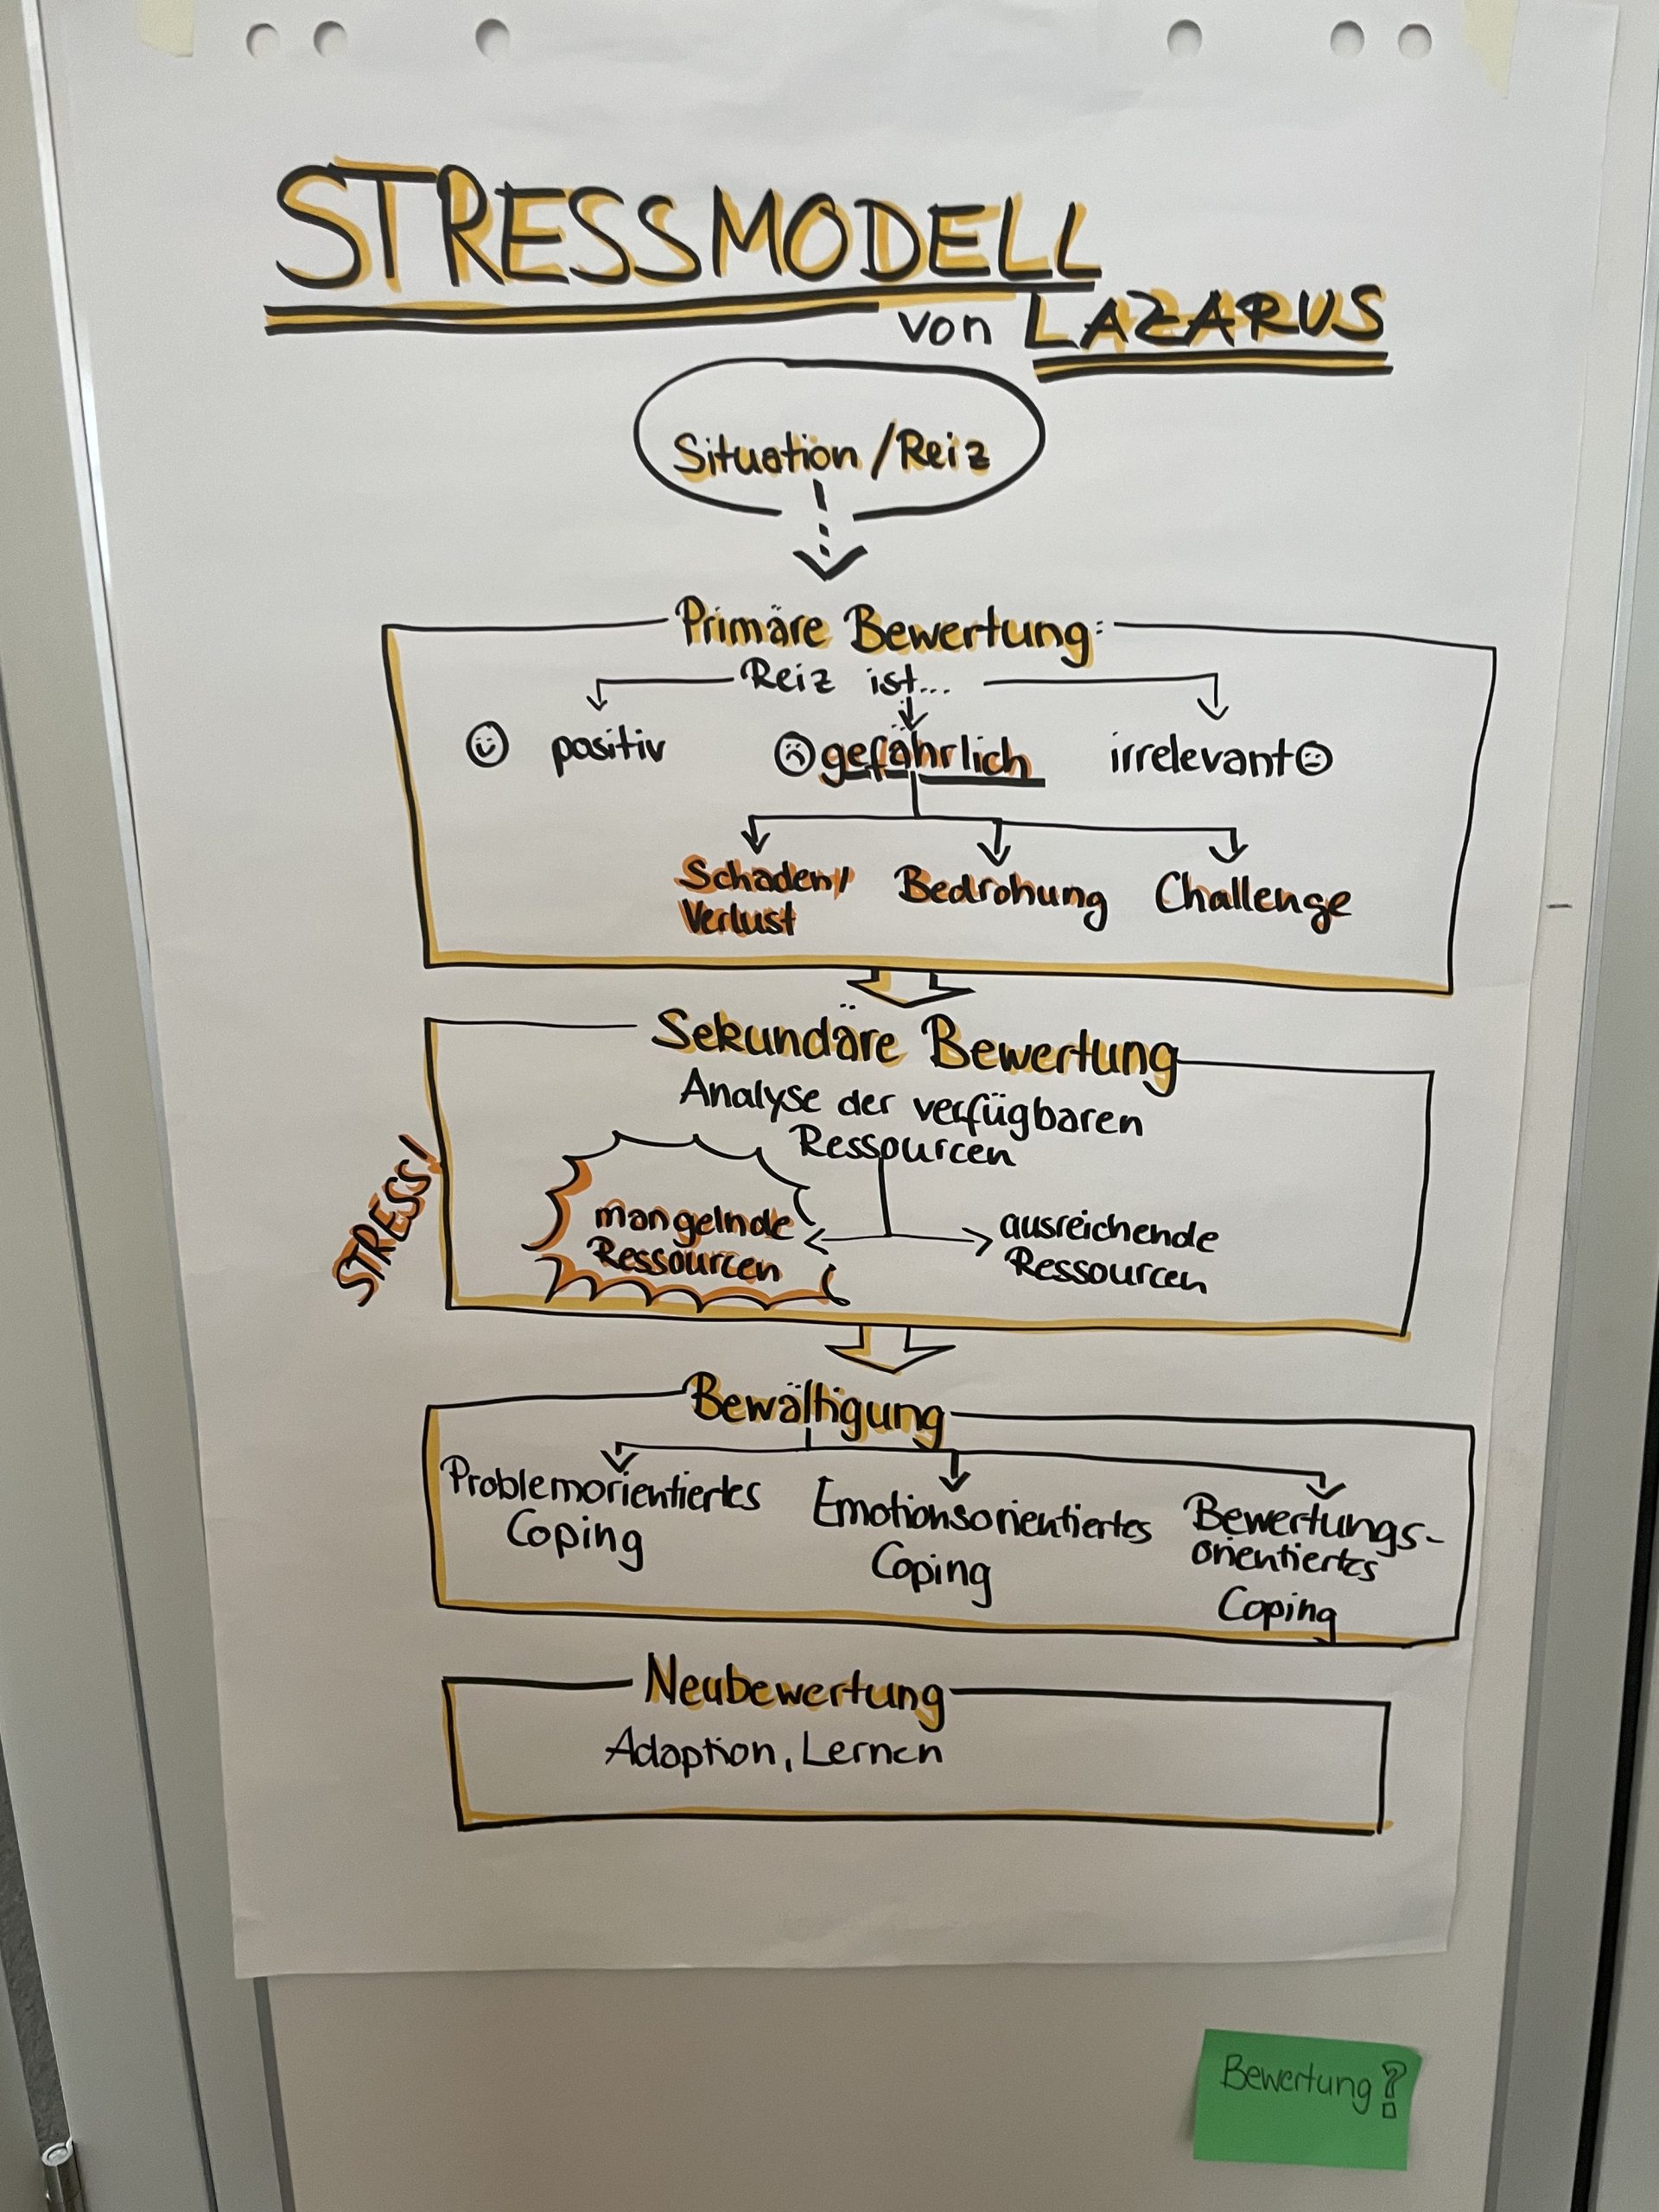 STRESSMODELL
von LAZARUS
Situation/Reiz
Primäre Bewertung:
Reiz ist...
positiv
gefährlich
irrelevant
Schaden/
Verlust
Bedrohung
Challenge
Sekundäre Bewertung
Analyse der verfügbaren
Ressourcen
STRESS!
mangelnde
Ressourcen
ausreichende
Ressourcen
Bewältigung
Problemorientiertes
Coping
Emotionsorientiertes
Coping
Bewertungs-
orientiertes
Coping
Neubewertung
Adaption, Lernen
Bewertung?